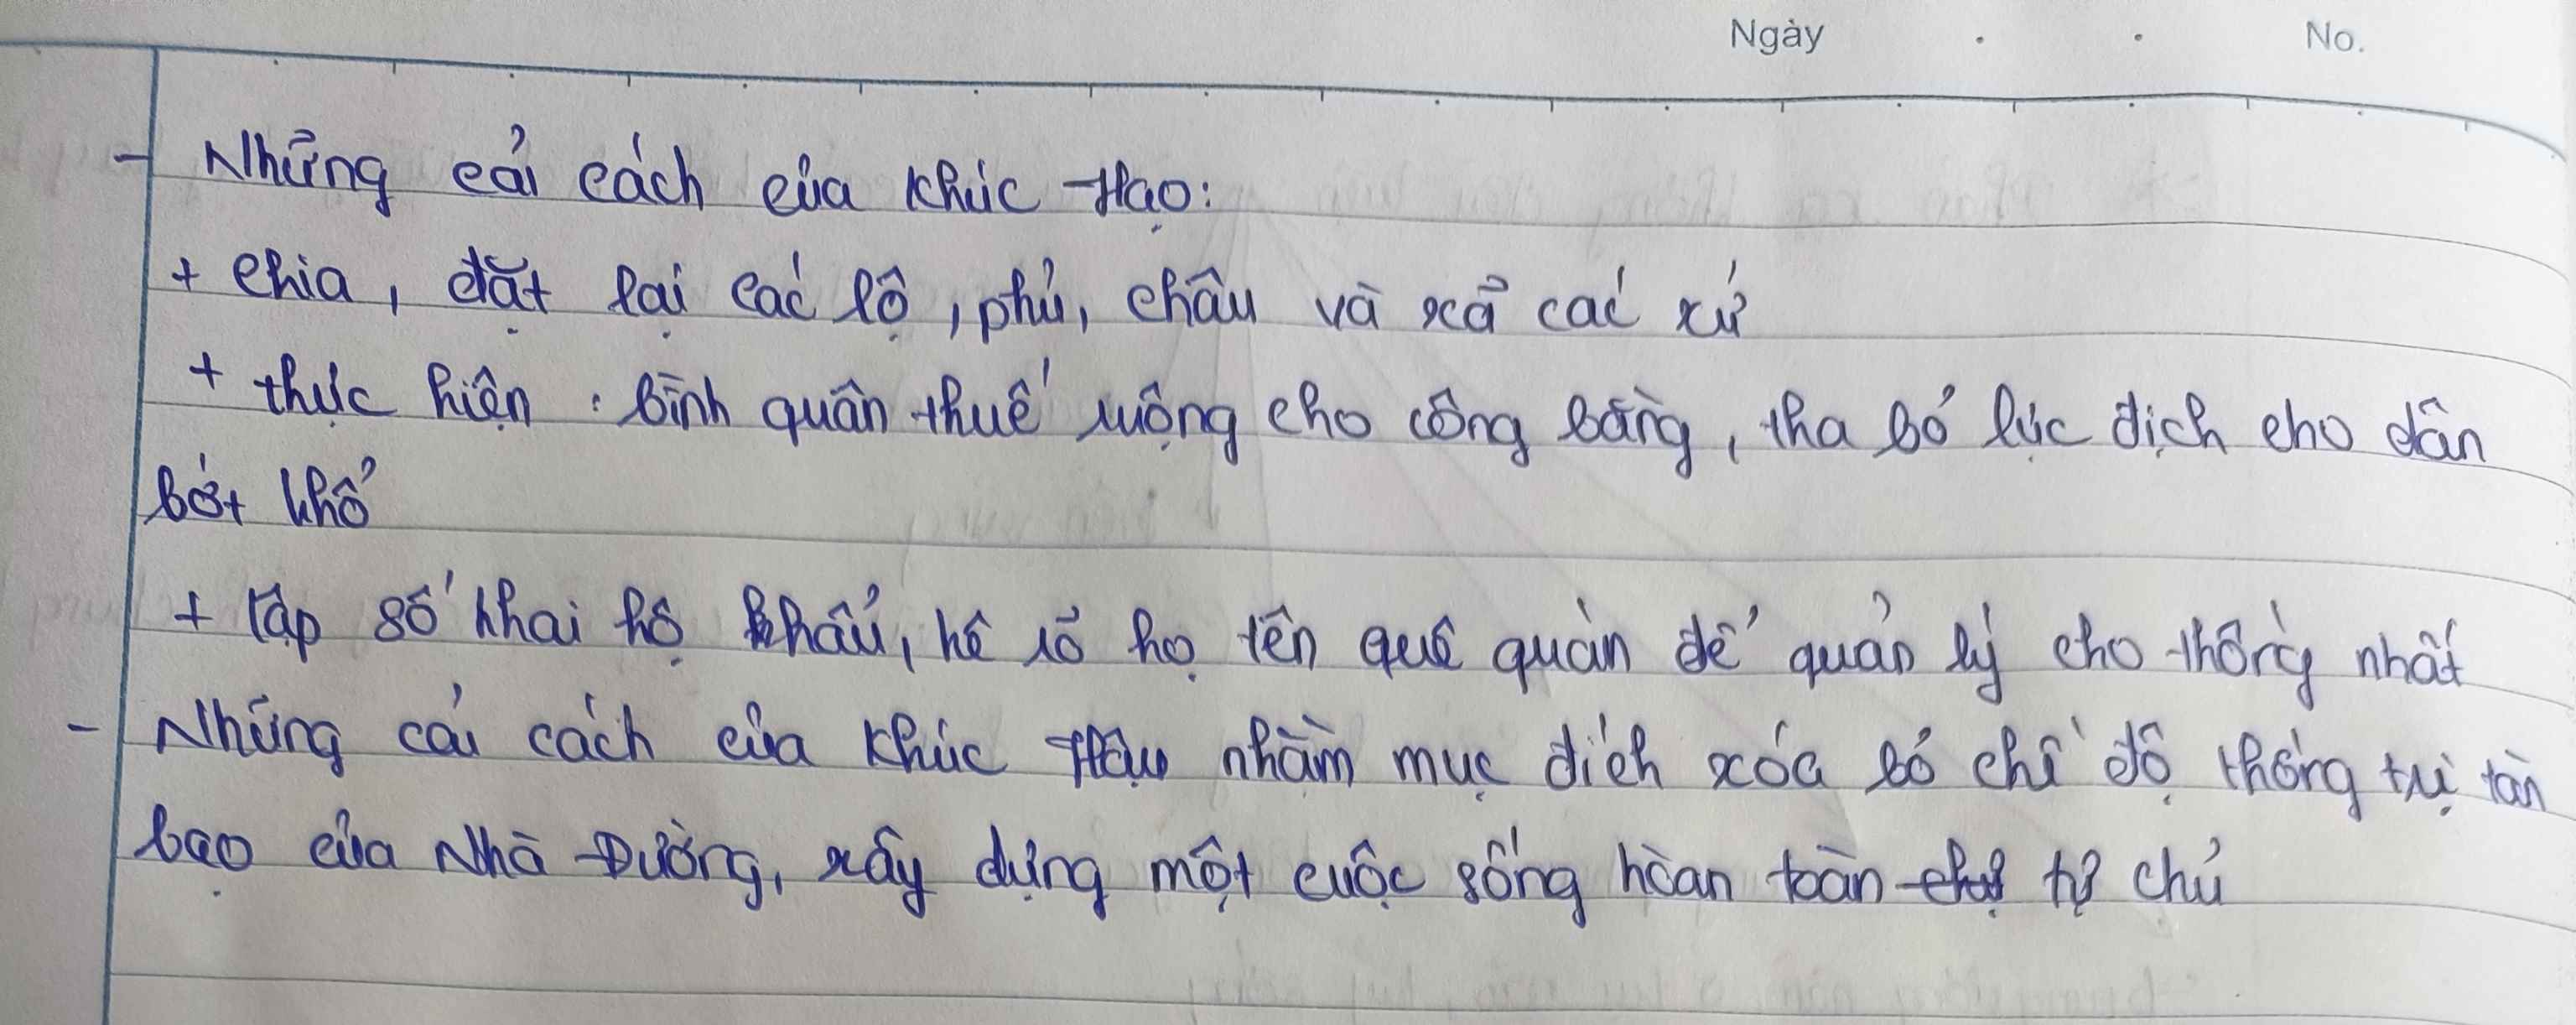 Ngày . . No.
- Những cải cách của Khúc Hạo:
+ chia, đặt lại các lộ, phủ, châu và xã các xứ
+ thực hiện : bình quân thuế ruộng cho công bằng, tha bỏ lực dịch cho dân
bớt khổ
+ lập sổ khai hộ khẩu, kê rõ họ tên quê quán để quản lý cho thống nhất
- Những cải cách của Khúc Hậu nhằm mục đích xóa bỏ chế độ thống trị tàn
bạo của Nhà Đường, xây dựng một cuộc sống hoàn toàn tự chủ